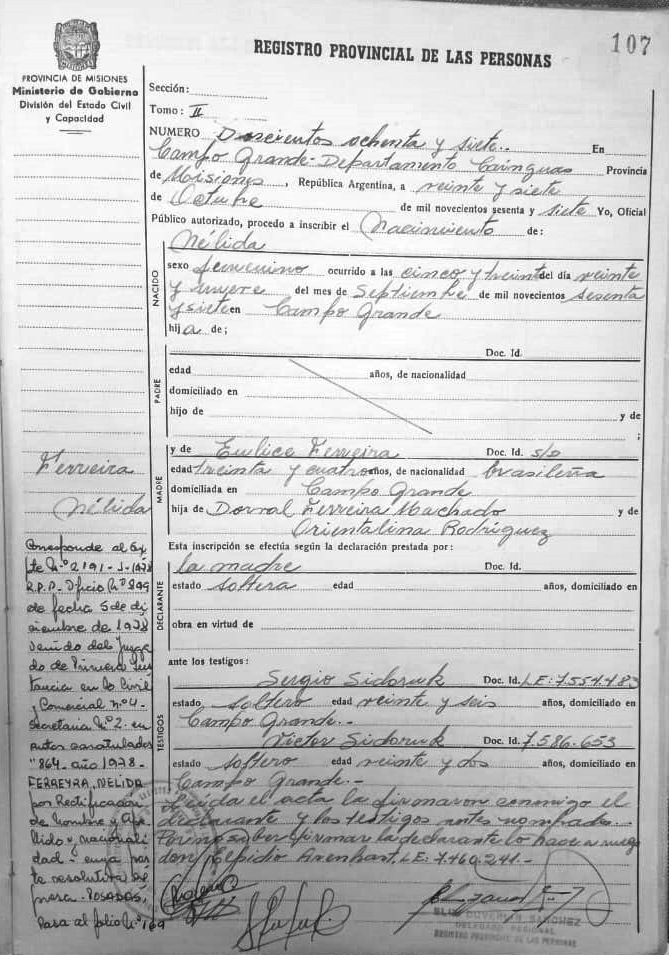 REGISTRO PROVINCIAL DE LAS PERSONAS
107
PROVINCIA DE MISIONES
Ministerio de Gobierno
División del Estado Civil
y Capacidad
Sección:
Tomo: II
NUMERO Doscientos ochenta y siete.. En
Campo Grande-Departamento Cainguas Provincia
de Misiones, República Argentina, a veinte y siete
de Octubre de mil novecientos sesenta y siete Yo, Oficial
Público autorizado, procedo a inscribir el Nacimiento de:
Nélida
NACIDO
sexo femenino ocurrido a las cinco y treinta del día veinte
y nueve del mes de Septiembre de mil novecientos sesenta
y siete en Campo Grande
hija de;
PADRE
Doc. Id.
edad años, de nacionalidad
domiciliado en
hijo de y de
;
MADRE
y de Eulice Ferreira Doc. Id. s/d
edad treinta y cuatro años, de nacionalidad brasileña
domiciliada en Campo Grande
hija de Dorval Ferreira Machado y de
Orientalina Rodríguez
Esta inscripción se efectúa según la declaración prestada por:
DECLARANTE
la madre Doc. Id.
estado soltera edad años, domiciliado en
obra en virtud de
ante los testigos:
TESTIGOS
Sergio Sidoruk Doc. Id. L.E: 7.554.483
estado soltero edad veinte y seis años, domiciliado en
Campo Grande.-
Victor Sidoruk Doc. Id. 7.586.653
estado soltero edad veinte y dos años, domiciliado en
Campo Grande.-
Leída el acta la firmaron conmigo el
declarante y los testigos antes nombrados..
Por no saber firmar la declarante lo hace a ruego
don L.E: 7.460.241.-
Ferreira
Nélida
Corresponde al Ex
pte Nº 2191-J-1978
R.P.P. Oficio Nº 899
de fecha 5 de di
ciembre de 1978
venido del Juzga
do de Primera Ins
tancia en lo Civil
y Comercial nº 4-
secretaria Nº 2. en
autos caratulados
"864-año 1978-
FERREYRA, NELIDA
por Rectificación
de Nombre y Ape
llido y nacionali
dad" cuya par
te resolutiva
POSADAS,
Pasa al folio Nº 169
DELEGADO REGIONAL
REGISTRO PROVINCIAL DE LAS PERSONAS